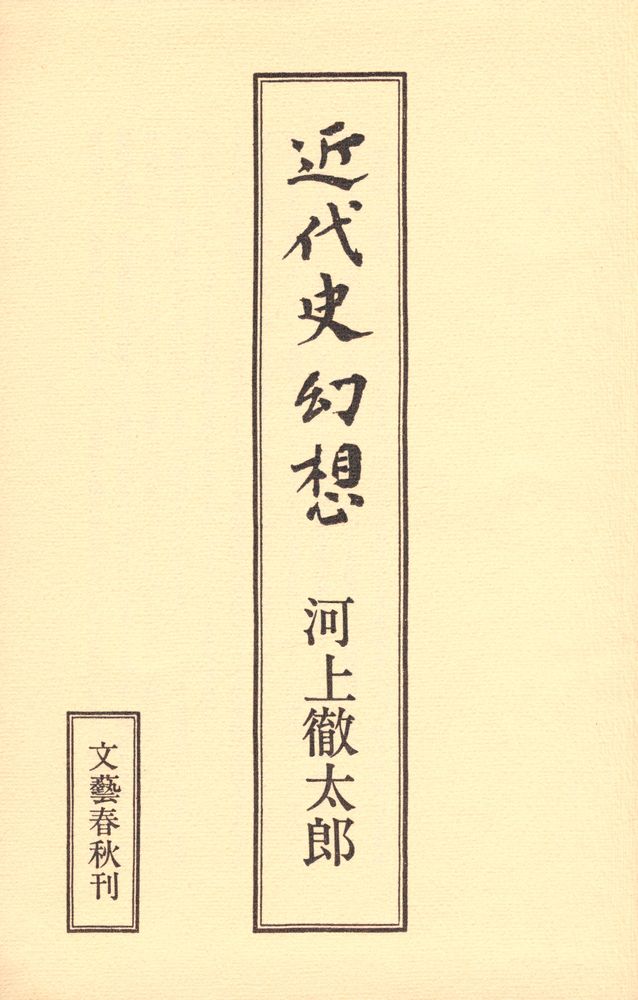 近代史幻想
河上徹太郎
文藝春秋刊